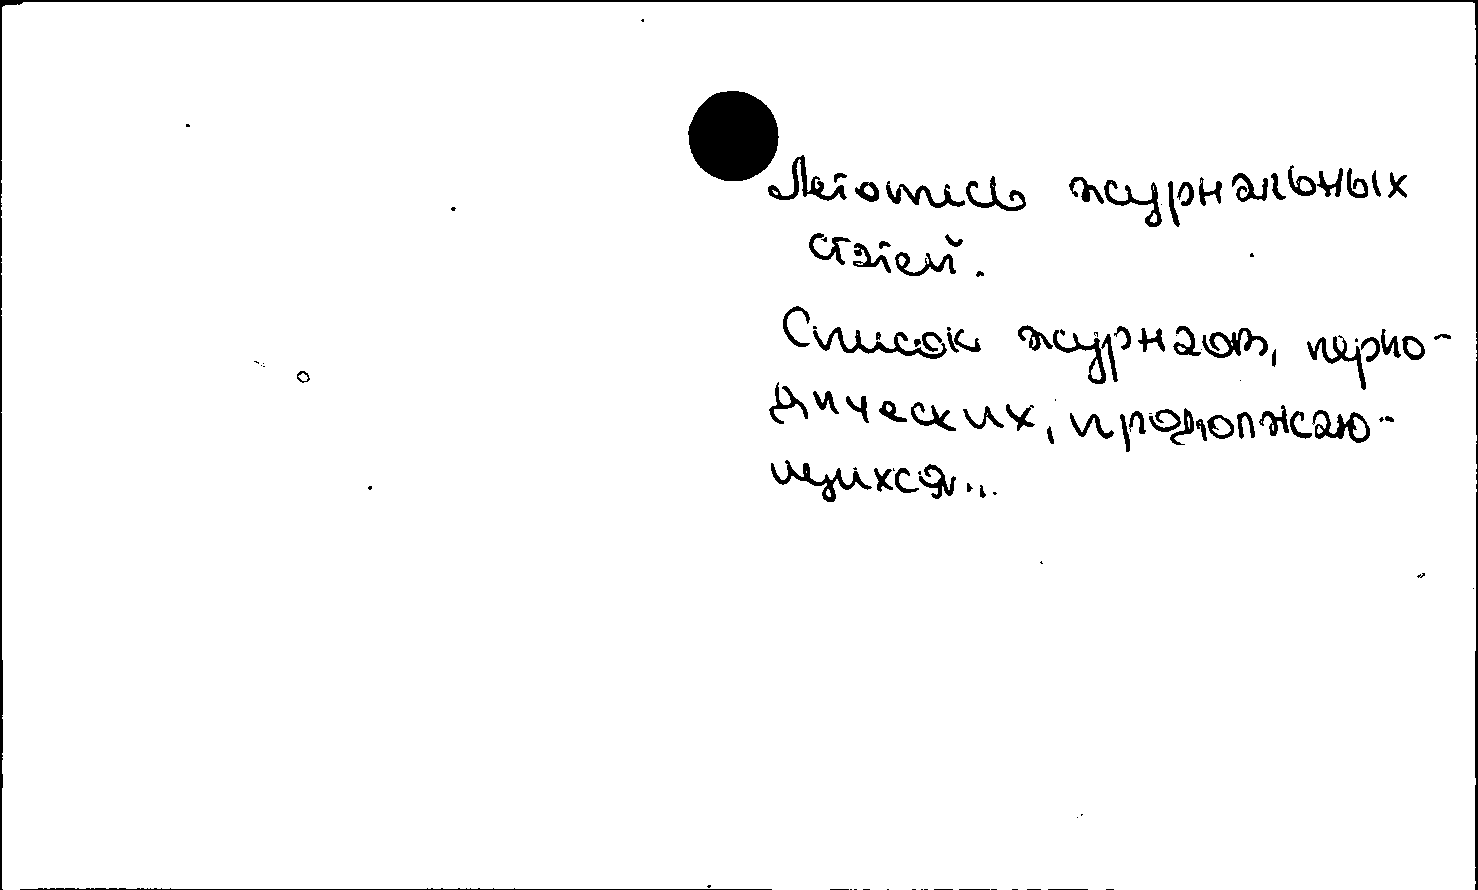 Летопись журнальных
статей.
Список журналов, перио-
дических, продолжаю-
щихся...